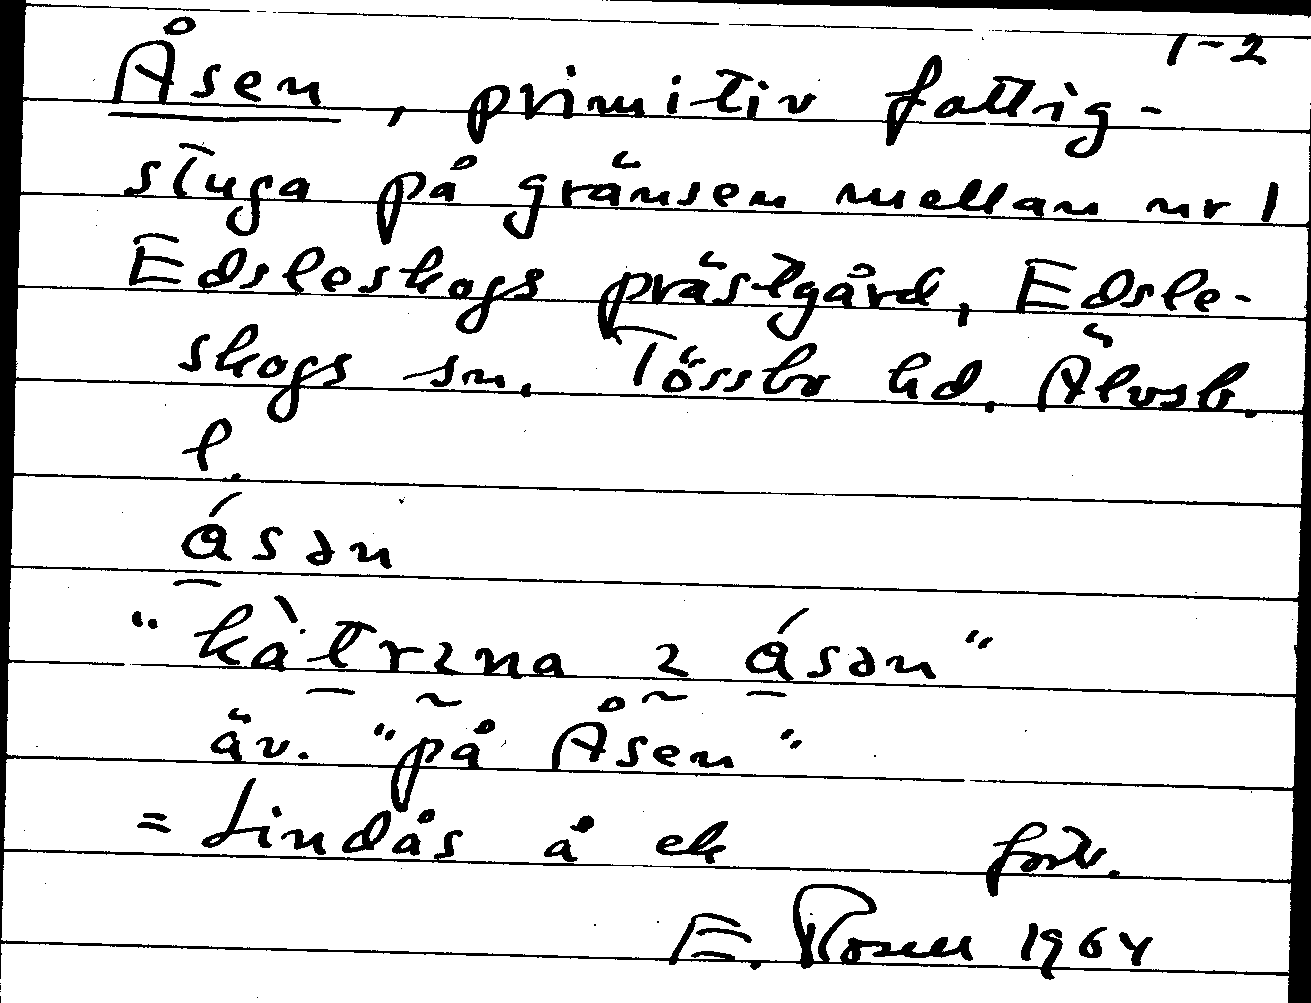 1-2
Åsen, primitiv fattig-
stuga på gränsen mellan nr 1
Edsleskogs prästgård, Edsle-
skogs sn. Tössbo hd. Älvsb.
l.
ásən
"kàtrɩna ɩ ásən"
äv. "på Åsen"
= Lindås å ek fort.
E. Rosell 1964